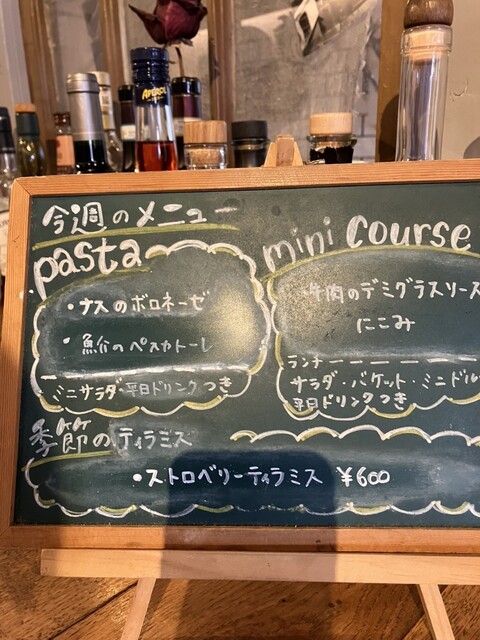 今週のメニュー
pasta
・ナスのボロネーゼ
・魚介のペスカトーレ
ミニサラダ・平日ドリンクつき
mini course
牛肉のデミグラスソース
にこみ
ランチ
サラダ・バケット・ミニドル
平日ドリンクつき
季節のティラミス
・ストロベリーティラミス ¥600
APEROL